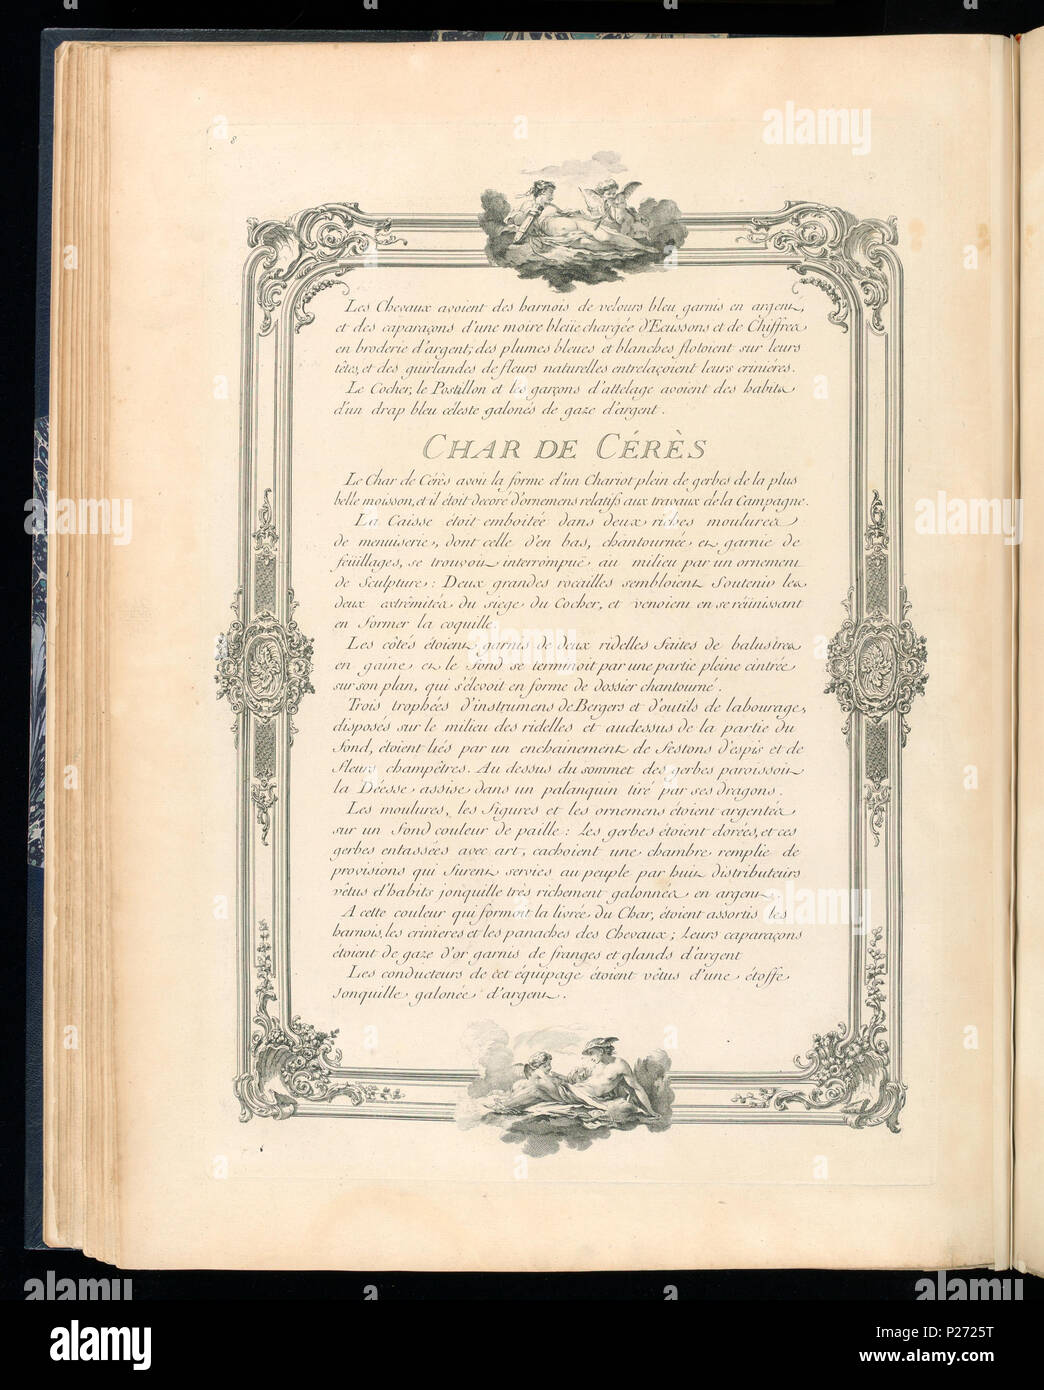 8
Les Chevaux avoient des harnois de velours bleu garnis en argent,
et des caparaçons d'une moire bleüe chargée d'Ecussons et de Chiffres
en broderie d'argent; des plumes bleues et blanches flotoient sur leurs
têtes, et des guirlandes de fleurs naturelles entrelaçoient leurs crinières.
Le Cocher, le Postillon et les garçons d'attelage avoient des habits
d'un drap bleu céleste galonés de gaze d'argent.
CHAR DE CÉRÈS
Le Char de Cérès avoit la forme d'un Chariot plein de gerbes de la plus
belle moisson, et il étoit decoré d'ornemens relatifs aux travaux de la Campagne.
La Caisse étoit emboitée dans deux riches moulures
de menuiserie, dont celle d'en bas, chantournée et garnie de
feüillages, se trouvoit interrompuë au milieu par un ornement
de Sculpture: Deux grandes rocailles sembloient Soutenir les
deux extrêmités du siege du Cocher, et venoient en se réünissant
en former la coquille.
Les côtés étoient garnis de deux ridelles faites de balustres
en gaine et le fond se terminoit par une partie pleine cintrée
sur son plan, qui s'élevoit en forme de dossier chantourné.
Trois trophées d'instrumens de Bergers et d'outils de labourage,
disposés sur le milieu des ridelles et audessus de la partie du
fond, étoient liés par un enchainement de festons d'epis et de
fleurs champêtres. Au dessus du sommet des gerbes paroissoit
la Déesse assise dans un palanquin tiré par ses dragons.
Les moulures, les figures et les ornemens étoient argentés
sur un fond couleur de paille: Les gerbes étoient dorées, et ces
gerbes entassées avec art, cachoient une chambre remplie de
provisions qui furent servies au peuple par huit distributeurs
vêtus d'habits jonquille très richement galonnés en argent.
A cette couleur qui formoit la livrée du Char, étoient assortis les
harnois, les crinieres et les panaches des Chevaux; Leurs caparaçons
étoient de gaze d'or garnis de franges et glands d'argent
Les conducteurs de cet équipage étoient vêtus d'une étoffe
jonquille galonée d'argent.
alamy
alamy
alamy
alamy
Image ID: P2725T
www.alamy.com